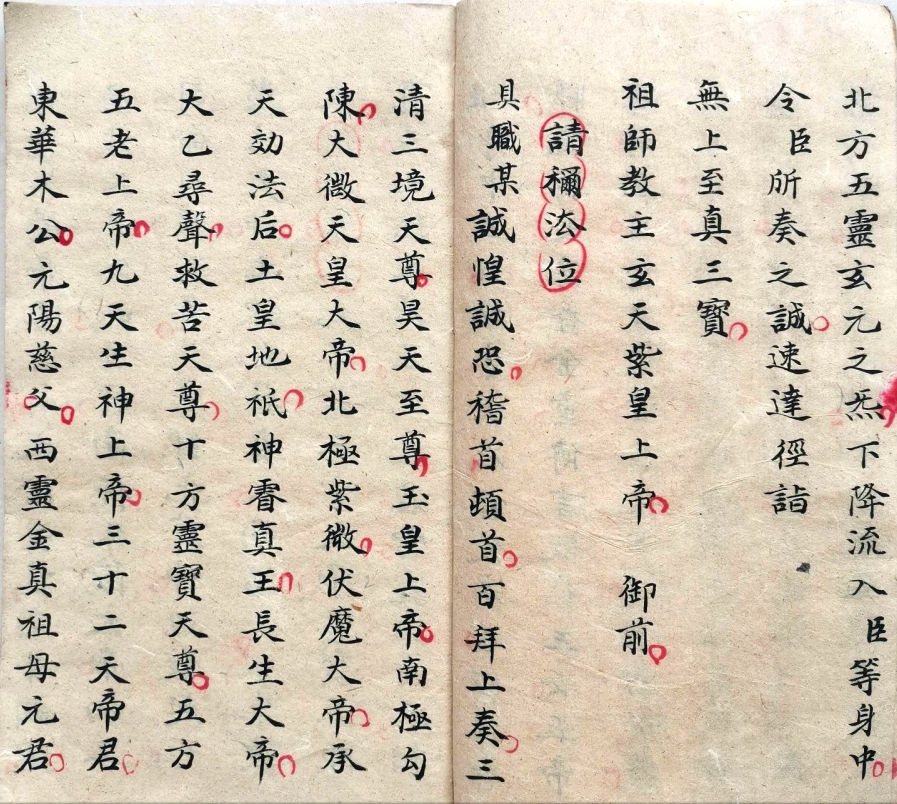 北方五靈玄元之炁下降流入臣等身中
令臣所奏之誠速達徑詣
無上至真三寶
祖師教主玄天紫皇上帝 御前
請稱法位
具職某誠惶誠恐稽首頓首百拜上奏三
清三境天尊昊天至尊玉皇上帝南極勾
陳大微天皇大帝北極紫微伏魔大帝承
天効法后土皇地祇神霄真王長生大帝
大乙尋聲救苦天尊十方靈寶天尊五方
五老上帝九天生神上帝三十二天帝君
東華木公元陽慈父西靈金真祖母元君